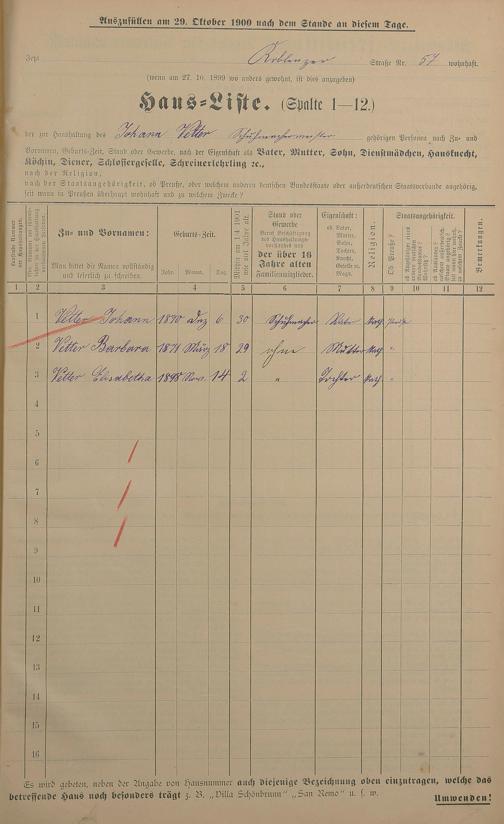 Auszufüllen am 29. Oktober 1900 nach dem Stande an diesem Tage.
Jetzt Koblenzer Straße Nr. 57 wohnhaft.
(wenn am 27. 10. 1899 wo anders gewohnt, ist dies anzugeben)
Haus-Liste. (Spalte 1—12.)
der zur Haushaltung des Johann Vetter Schuhmachermeister gehörigen Personen nach Zu- und
Vornamen, Geburts-Zeit, Stand oder Gewerbe, nach der Eigenschaft als Vater, Mutter, Sohn, Dienstmädchen, Hausknecht,
Köchin, Diener, Schlossergeselle, Schreinerlehrling ꝛc.,
nach der Religion,
nach der Staatsangehörigkeit, ob Preuße, oder welchem anderen deutschen Bundesstaate oder außerdeutschen Staatsverbande angehörig,
seit wann in Preußen überhaupt wohnhaft und zu welchem Zwecke?
Zu- und Vornamen:
Man bittet die Namen vollständig und leserlich zu schreiben.
Geburts-Zeit.
Jahr. Monat. Tag.
Stand oder Gewerbe
der über 16 Jahre alten Familienmitglieder.
Eigenschaft:
ob Vater, Mutter, Sohn, Tochter, Knecht, Geselle oder Magd.
Religion.
Staatsangehörigkeit.
Ob Preuße?
Bemerkungen.
1 2 3 4 5 6 7 8 9 10 11 12
1 Vetter Johann 1870 6 30 Schuhmacher Vater Kath.
2 Vetter Barbara 1871 März 18 29 ohne Mutter Kath. "
3 Vetter Elisabetha 1898 Nov. 14 2 " Tochter Kath. "
4
5
6
7
8
9
10
11
12
13
14
15
16
Es wird gebeten, neben der Angabe von Hausnummer auch diejenige Bezeichnung oben einzutragen, welche das
betreffende Haus noch besonders trägt z. B. „Villa Schönbrunn" „San Remo" u. s. w.
Umwenden!